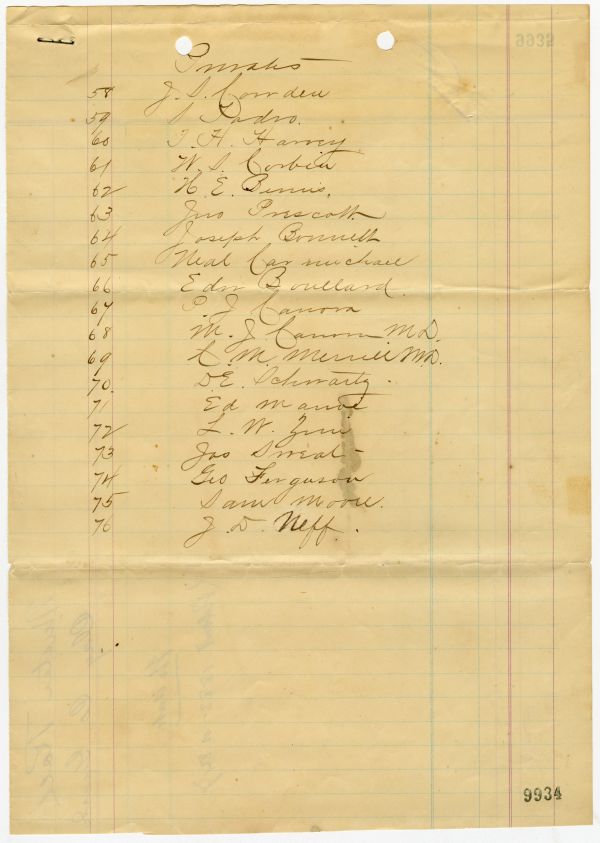 9932
Privates
58 J. S. Cowden
59 S Podro.
60 T. H. Harvey
61 W. S. Corbin
62 H. E. Bemis.
63 Jno Prescott
64 Joseph Bonnett
65 Neal Carmichael
66 Edw Boullard.
67 P. J. Canova
68 M. J. Canova M.D.
69 C. M. Merrill M.D.
70. D. E. Schwartz.
71 Ed
72 L. W.
73 Jas Sweat
74 Geo Ferguson
75 Sam Moore.
76 J. D. Neff.
9934